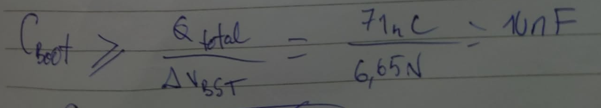 C_Boot ⩾ Q_total / ΔV_BST = 71nC / 6,65V = 10nF